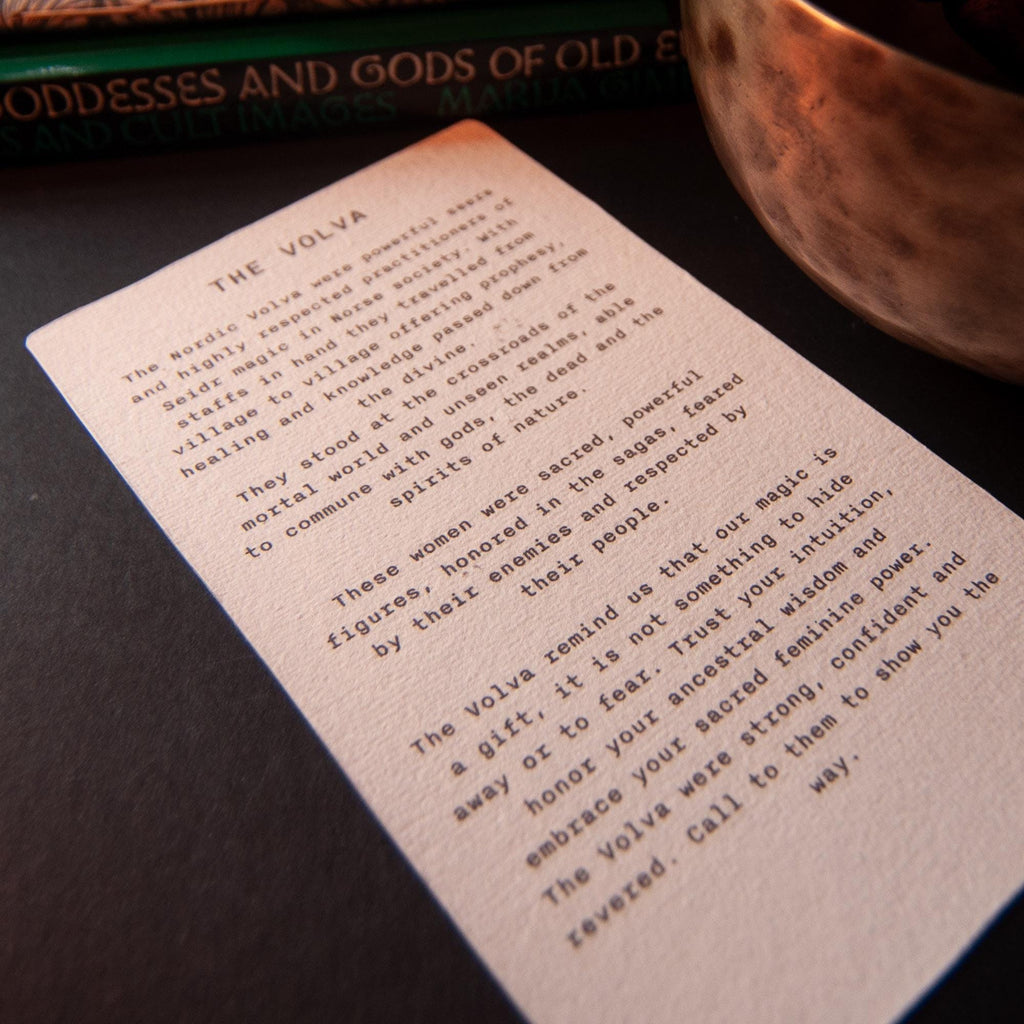 ODDESSES AND GODS OF OLD E
S AND CULT IMAGES MARIJA GIM
THE VOLVA
The Nordic Volva were powerful seers
and highly respected practitioners of
Seidr magic in Norse society. With
staffs in hand they travelled from
village to village offering prophesy,
healing and knowledge passed down from
the divine.
They stood at the crossroads of the
mortal world and unseen realms, able
to commune with gods, the dead and the
spirits of nature.
These women were sacred, powerful
figures, honored in the sagas, feared
by their enemies and respected by
their people.
The Volva remind us that our magic is
a gift, it is not something to hide
away or to fear. Trust your intuition,
honor your ancestral wisdom and
embrace your sacred feminine power.
The Volva were strong, confident and
revered. Call to them to show you the
way.